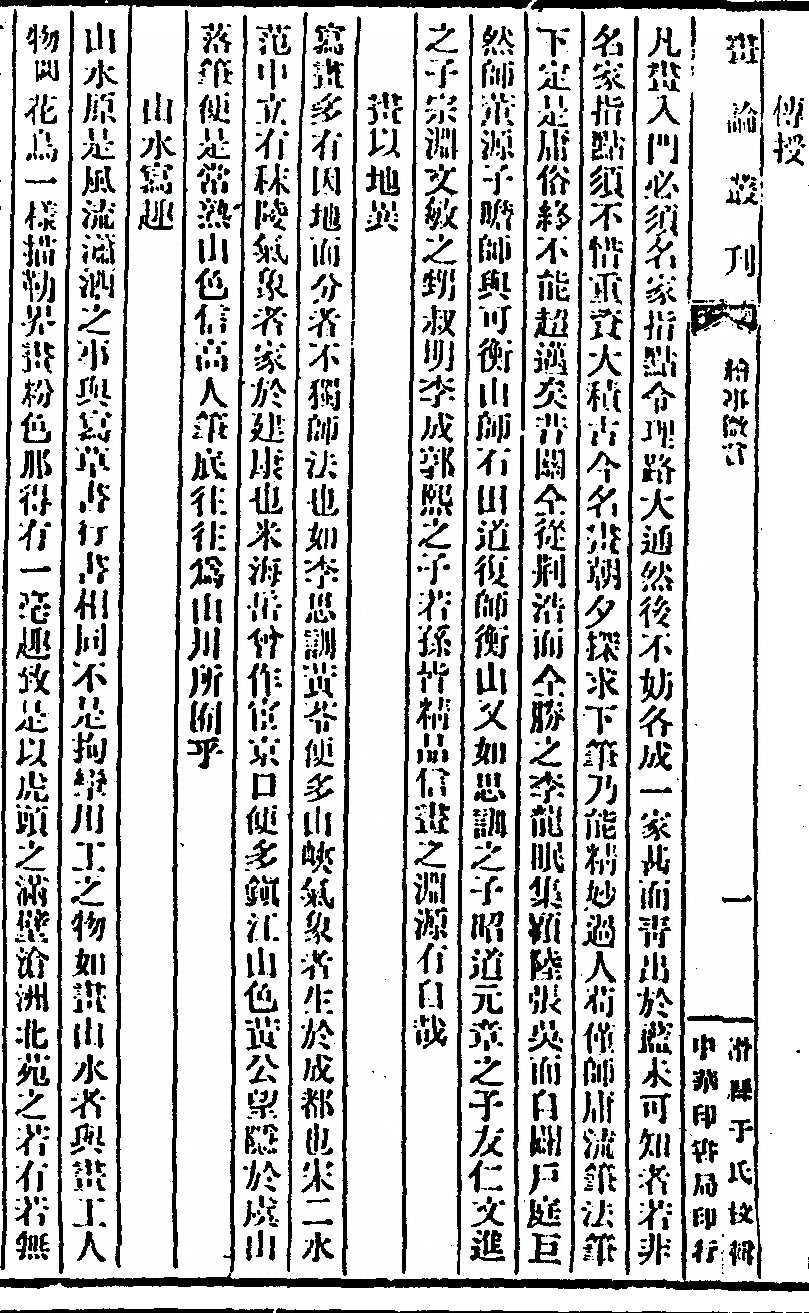 傳授
畫論叢刊 繪事微言 一 滑縣于氏校輯 中華印書局印行
凡畫入門必須名家指點令理路大通然後不妨各成一家甚而青出於藍未可知者若非
名家指點須不惜重資大積古今名畫朝夕探求下筆乃能精妙過人苟僅師庸流筆法筆
下定是庸俗終不能超邁矣昔關仝從荆浩而仝勝之李龍眠集顧陸張吳而自闢戶庭巨
然師董源子瞻師與可衡山師石田道復師衡山又如思訓之子昭道元章之子友仁文進
之子宗淵文敏之甥叔明李成郭熙之子若孫皆精品信畫之淵源有自哉
畫以地異
寫畫多有因地而分者不獨師法也如李思訓黃荃便多山峽氣象者生於成都也宋二水
范中立有秣陵氣象者家於建康也米海岳曾作宦京口便多鎮江山色黃公望隱於虞山
落筆便是常熟山色信高人筆底往往爲山川所囿乎
山水寫趣
山水原是風流瀟洒之事與寫草書行書相同不是拘攣用工之物如畫山水者與畫工人
物間花鳥一樣描勒界畫粉色那得有一毫趣致是以虎頭之滿壁滄洲北苑之若有若無